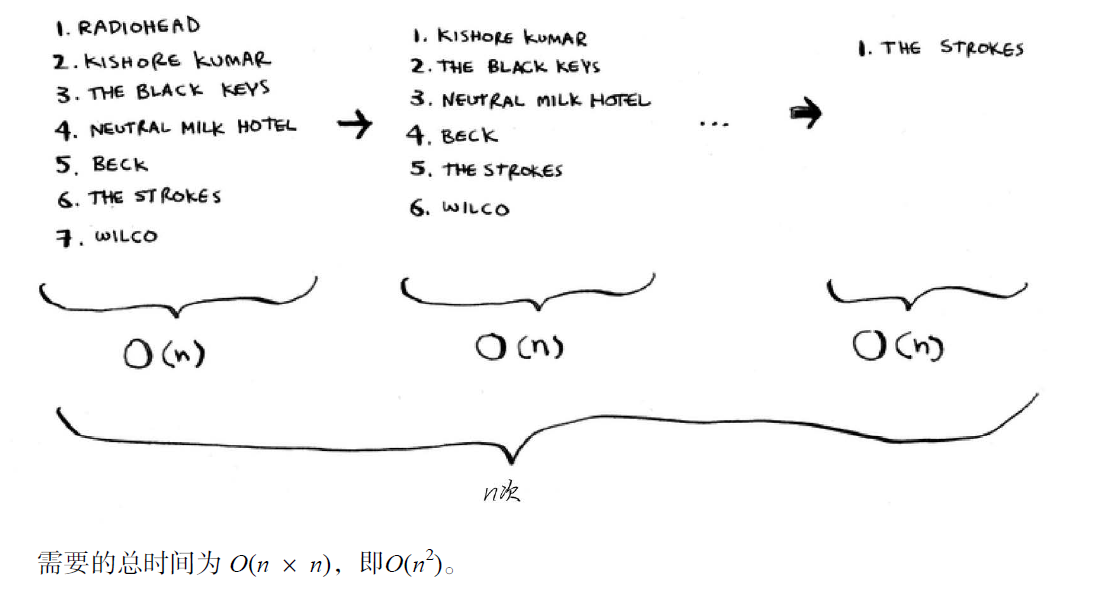 1. RADIOHEAD
2. KISHORE KUMAR
3. THE BLACK KEYS
4. NEUTRAL MILK HOTEL
5. BECK
6. THE STROKES
7. WILCO
1. KISHORE KUMAR
2. THE BLACK KEYS
3. NEUTRAL MILK HOTEL
4. BECK
5. THE STROKES
6. WILCO
...
1. THE STROKES
O(n)
O(n)
O(n)
n次
需要的总时间为 O(n × n)，即O(n²)。